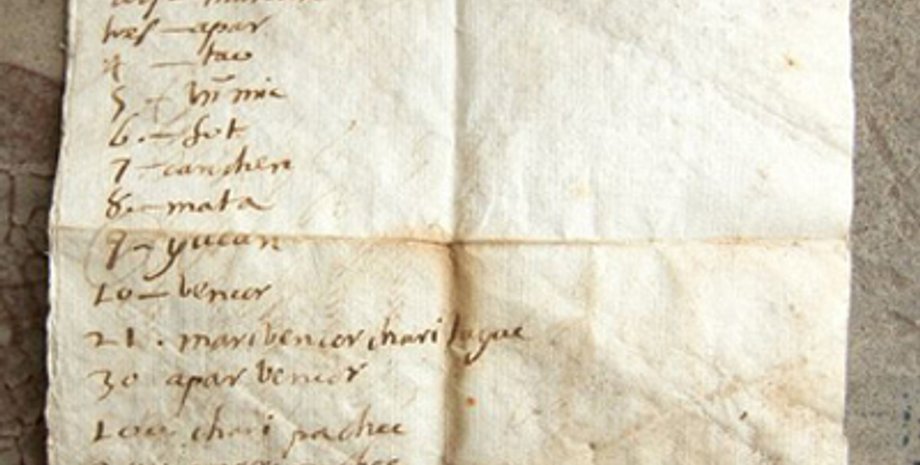 tres — apar
4 — tau
5. — himic
6. — sut
7 — canchen
8. — mata
9 — yucan
10 — bencor
21. maribencor chari tayac
30 apar bencor
100 chari pachac